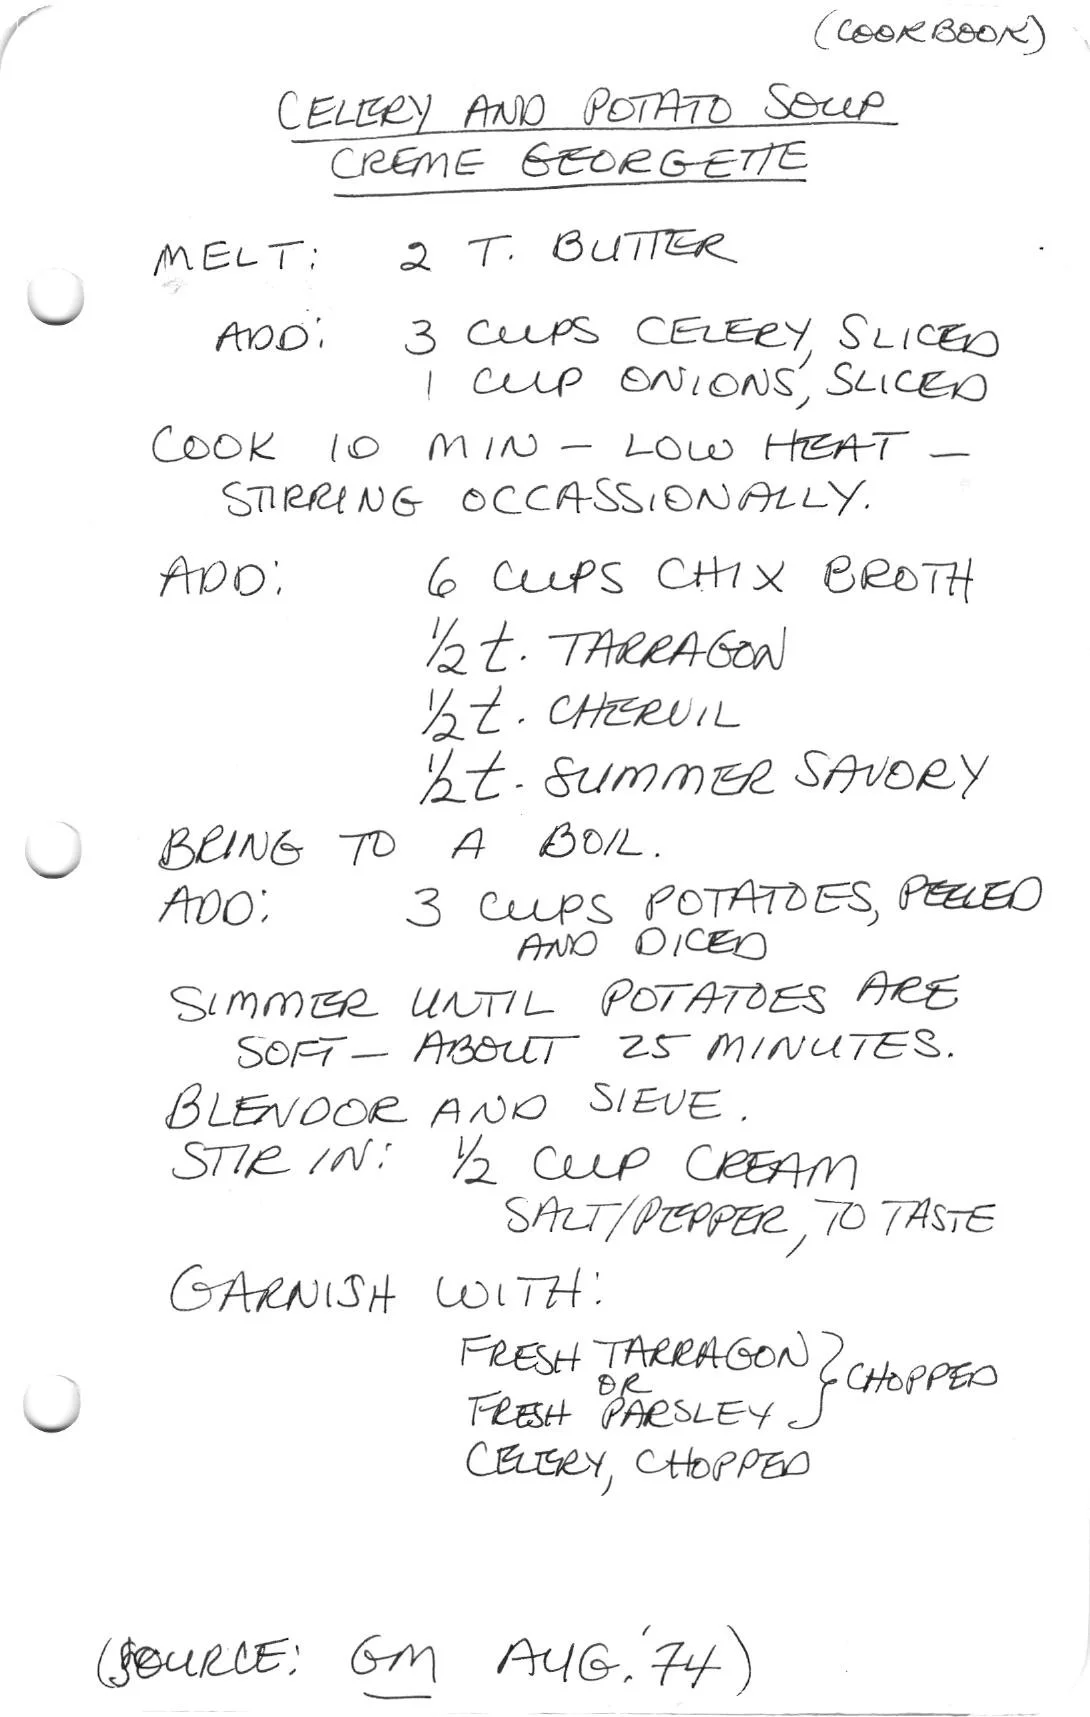 (COOKBOOK)
CELERY AND POTATO SOUP
CREME GEORGETTE
MELT: 2 T. BUTTER
ADD: 3 CUPS CELERY, SLICED
1 CUP ONIONS, SLICED
COOK 10 MIN – LOW HEAT –
STIRRING OCCASSIONALLY.
ADD: 6 CUPS CHIX BROTH
1/2 t. TARRAGON
1/2 t. CHERVIL
1/2 t. SUMMER SAVORY
BRING TO A BOIL.
ADD: 3 CUPS POTATOES, PEELED
AND DICED
SIMMER UNTIL POTATOES ARE
SOFT – ABOUT 25 MINUTES.
BLENDOR AND SIEVE.
STIR IN: 1/2 CUP CREAM
SALT/PEPPER, TO TASTE
GARNISH WITH:
FRESH TARRAGON } CHOPPED
OR
FRESH PARSLEY
CELERY, CHOPPED
(SOURCE: GM AUG. '74)